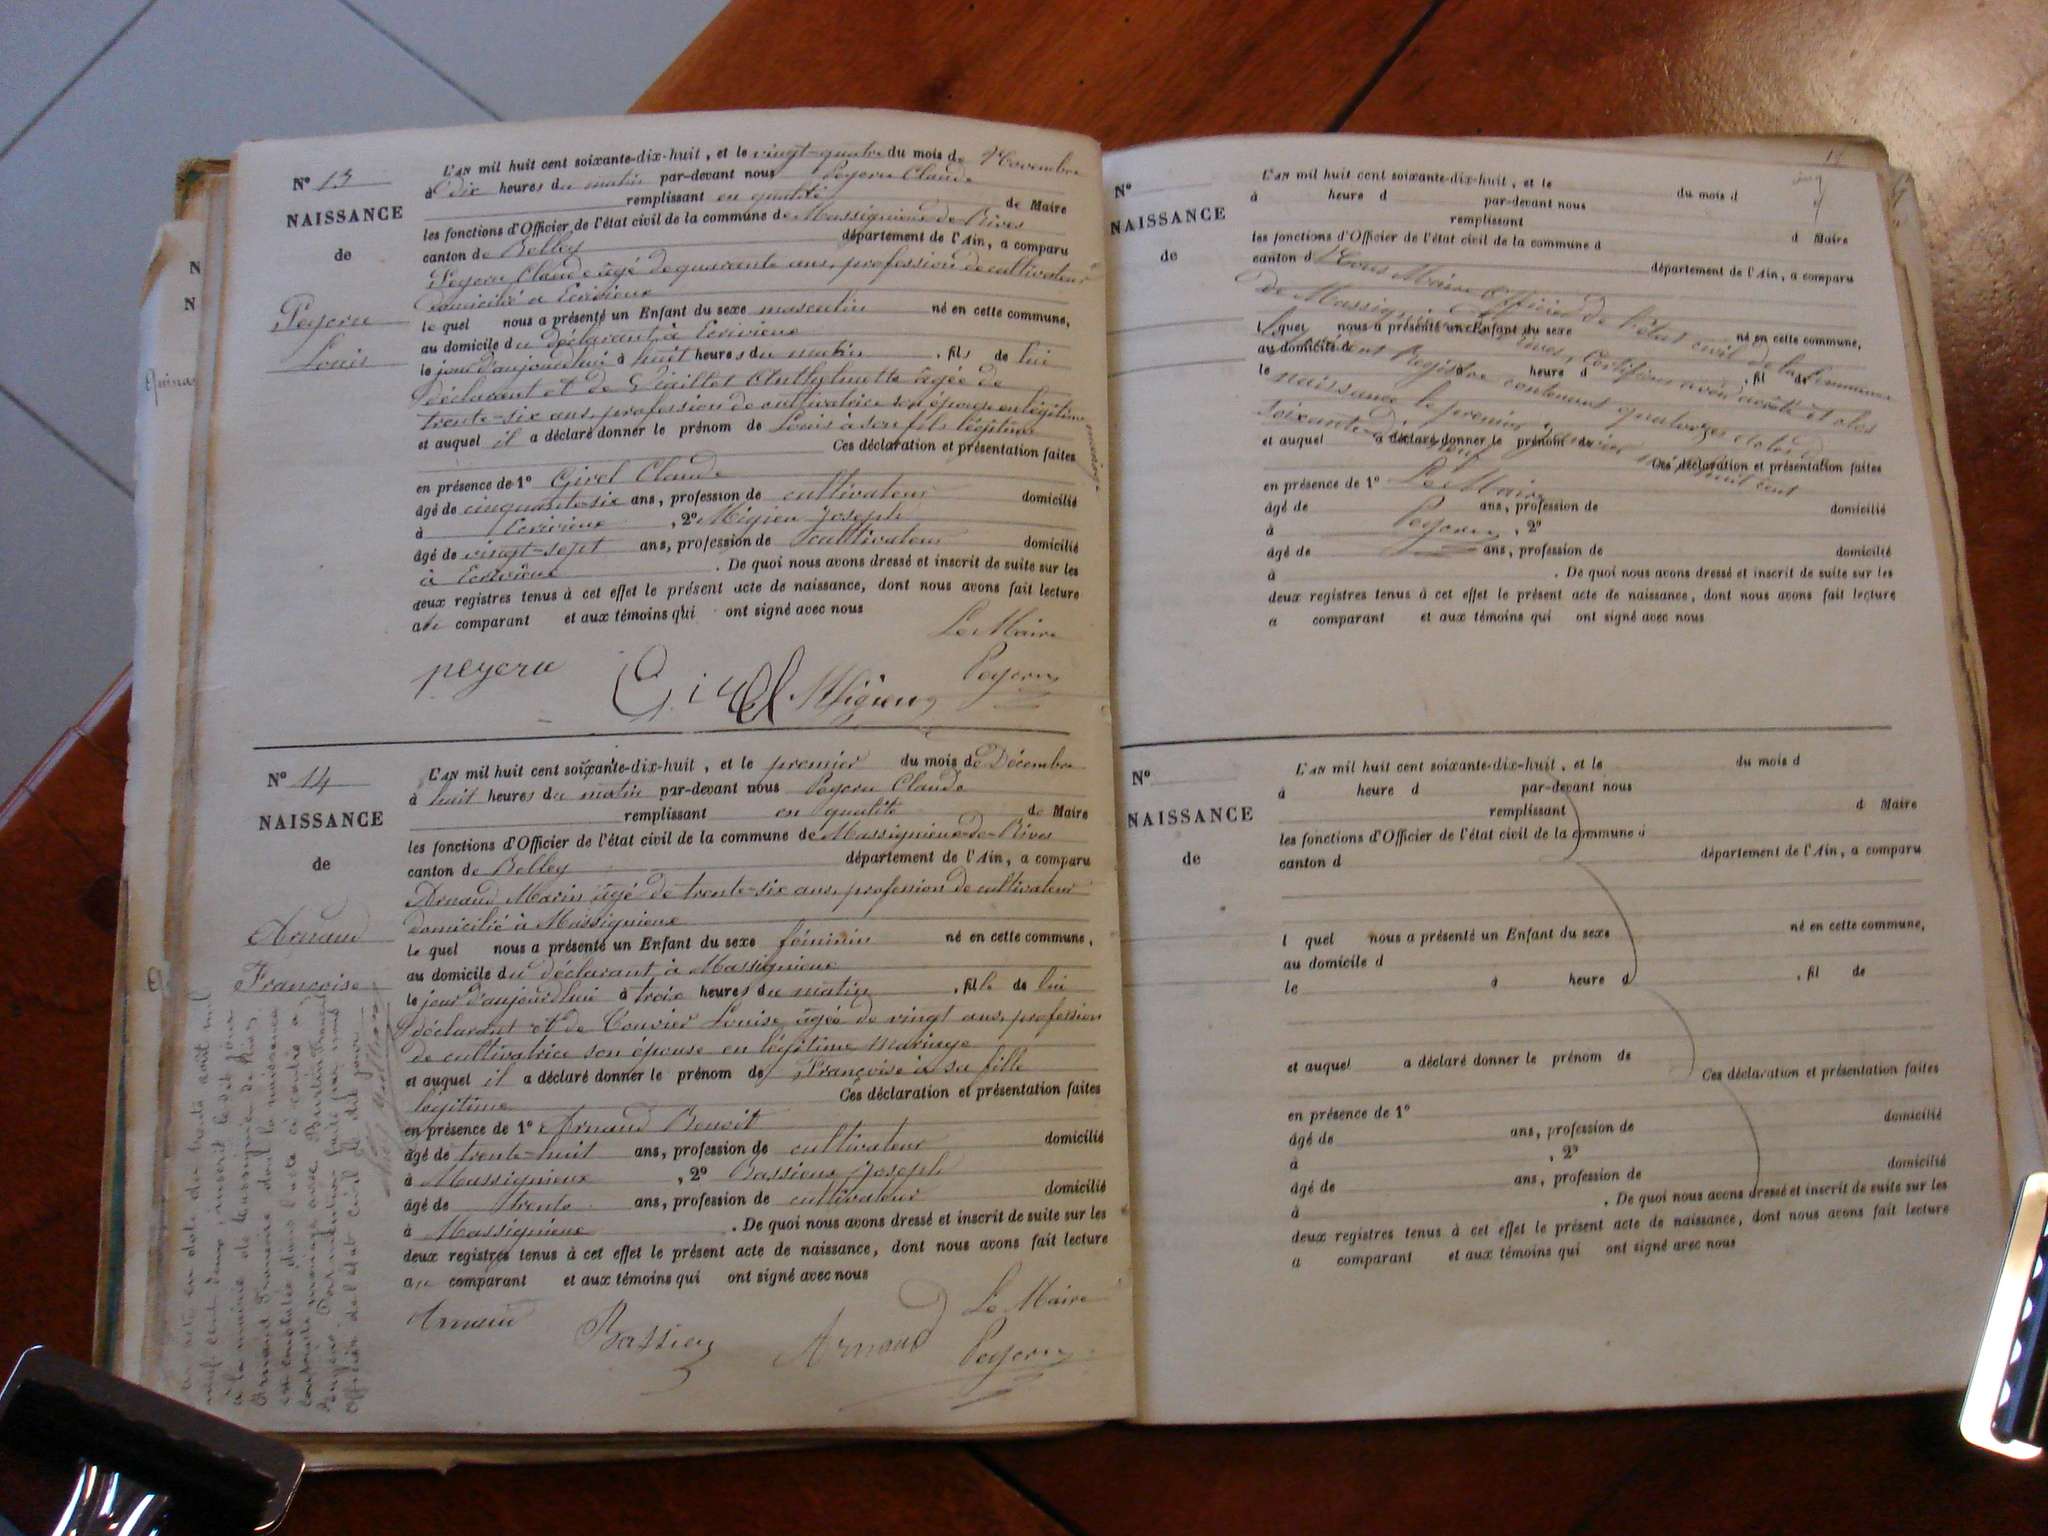 N° 13
NAISSANCE
de
Peyeru
Louis
L'AN mil huit cent soixante-dix-huit, et le vingt-quatre du mois de Novembre
à dix heures du matin par-devant nous Peyeru Claude
remplissant en qualité de Maire
les fonctions d'Officier de l'état civil de la commune de Massignieu-de-Rives
canton de Belley département de l'Ain, a comparu
Peyeru Claude âgé de quarante ans, profession de cultivateur
domicilié à Ecrivieux
le quel nous a présenté un Enfant du sexe masculin né en cette commune,
au domicile du déclarant à Ecrivieux
le jour d'aujourd'hui à huit heures du matin, fils de lui
déclarant et de Viaillet Anthelmette âgée de
trente-six ans, profession de cultivatrice son épouse en légitime
mariage
et auquel il a déclaré donner le prénom de Louis à son fils légitime
Ces déclaration et présentation faites
en présence de 1° Girel Claude
âgé de cinquante-six ans, profession de cultivateur domicilié
à Ecrivieux, 2° Migieu Joseph
âgé de vingt-sept ans, profession de cultivateur domicilié
à Ecrivieux. De quoi nous avons dressé et inscrit de suite sur les
deux registres tenus à cet effet le présent acte de naissance, dont nous avons fait lecture
au comparant et aux témoins qui ont signé avec nous
Le Maire
peyeru Girel Migieu Peyeru
N° 14
NAISSANCE
de
Arnaud
Françoise
L'AN mil huit cent soixante-dix-huit, et le premier du mois de Décembre
à huit heures du matin par-devant nous Peyeru Claude
remplissant en qualité de Maire
les fonctions d'Officier de l'état civil de la commune de Massignieu-de-Rives
canton de Belley département de l'Ain, a comparu
Arnaud Marin âgé de trente-six ans, profession de cultivateur
domicilié à Massignieux
le quel nous a présenté un Enfant du sexe féminin né en cette commune,
au domicile du déclarant à Massignieux
le jour d'aujourd'hui à troix heures du matin, fille de lui
déclarant et de Couvier Louise âgée de vingt ans, profession
de cultivatrice son épouse en légitime mariage
et auquel il a déclaré donner le prénom de Françoise à sa fille
légitime Ces déclaration et présentation faites
en présence de 1° Arnaud Benoit
âgé de trente-huit ans, profession de cultivateur domicilié
à Massignieux, 2° Bassieux Joseph
âgé de trente ans, profession de cultivateur domicilié
à Massignieux. De quoi nous avons dressé et inscrit de suite sur les
deux registres tenus à cet effet le présent acte de naissance, dont nous avons fait lecture
au comparant et aux témoins qui ont signé avec nous
Le Maire
Arnaud Bassieu Arnaud Peyeru
en date du trente août mil
neuf cent deux, inscrit le dit jour
à la mairie de Massignieu de Rives,
Arnaud Françoise dont la naissance
est constatée dans l'acte ci contre a
contracté mariage avec
Mention faite par nous
Officier de l'état civil le dit jour
N°
NAISSANCE
de
L'AN mil huit cent soixante-dix-huit, et le du mois d
à heure d par-devant nous
remplissant d Maire
les fonctions d'Officier de l'état civil de la commune d
canton d département de l'Ain, a comparu
Nous Maire Officier de l'état civil de la Commune
de Massignieu de Rives, Certifions avoir arrêté et clos
le présent Registre contenant quatorze actes de
naissance le premier Janvier mil huit cent
soixante-dix-neuf
Le Maire
Peyeru
l quel nous a présenté un Enfant du sexe né en cette commune,
au domicile d
le à heure d, fil de
et auquel a déclaré donner le prénom de
Ces déclaration et présentation faites
en présence de 1°
âgé de ans, profession de domicilié
à, 2°
âgé de ans, profession de domicilié
à. De quoi nous avons dressé et inscrit de suite sur les
deux registres tenus à cet effet le présent acte de naissance, dont nous avons fait lecture
a comparant et aux témoins qui ont signé avec nous
N°
NAISSANCE
de
L'AN mil huit cent soixante-dix-huit, et le du mois d
à heure d par-devant nous
remplissant d Maire
les fonctions d'Officier de l'état civil de la commune d
canton d département de l'Ain, a comparu
l quel nous a présenté un Enfant du sexe né en cette commune,
au domicile d
le à heure d, fil de
et auquel a déclaré donner le prénom de
Ces déclaration et présentation faites
en présence de 1° domicilié
âgé de ans, profession de
à, 2° domicilié
âgé de ans, profession de
à. De quoi nous avons dressé et inscrit de suite sur les
deux registres tenus à cet effet le présent acte de naissance, dont nous avons fait lecture
a comparant et aux témoins qui ont signé avec nous